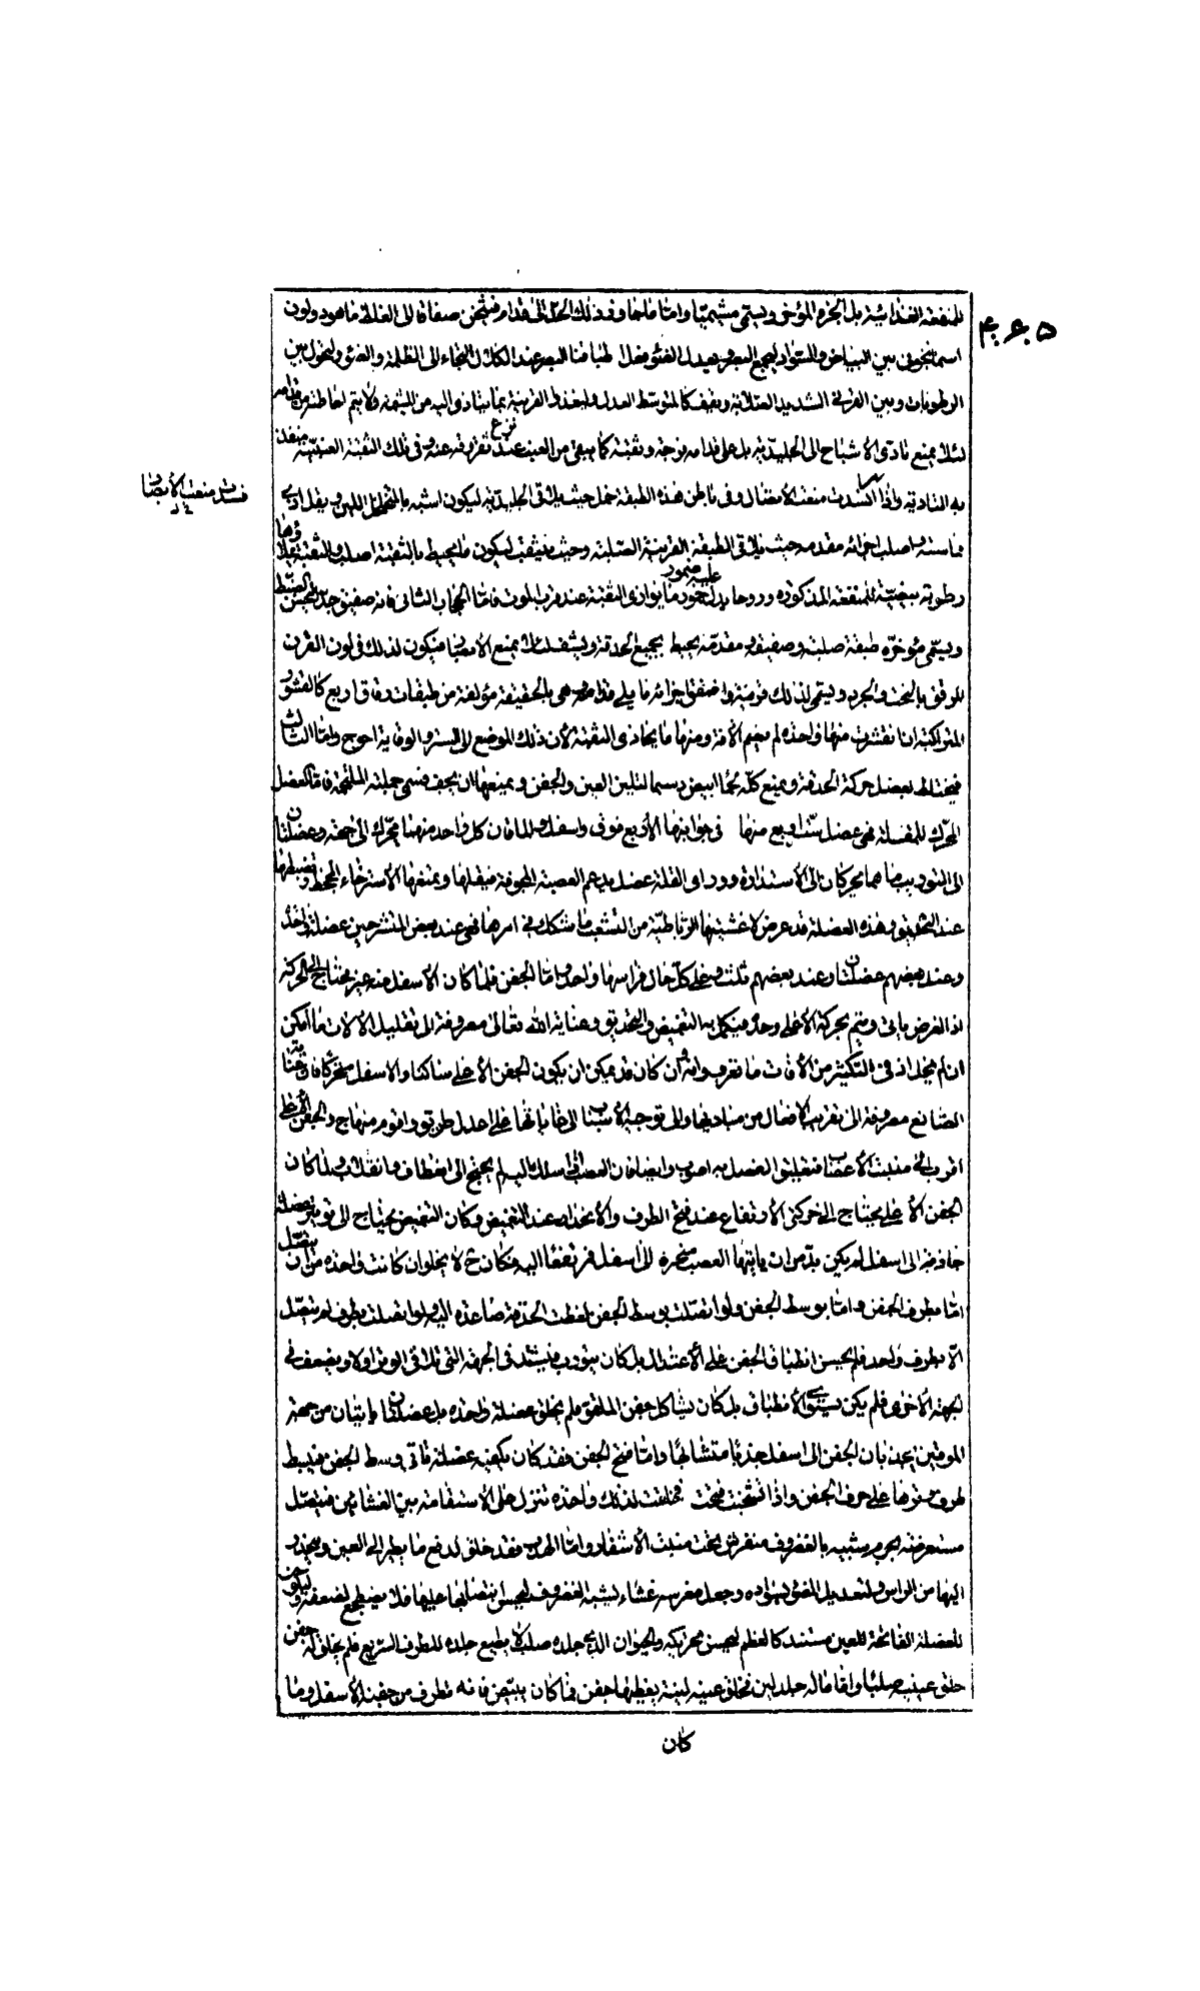 للمنفعة الغذائية بل الجزء المؤخر ويسمى مشيميا واما ما جاوز ذلك الحد الى قدام فيثخن صفاقا الى الغلظ ما هو ذو لون
اسمانجونى بين البياض والسواد ليجمع البصر ويعدل الضوء فعل اطباقنا البصر عند الكلال التجاء الى الظلمة والضوء وليحول بين
الرطوبات وبين القرنى الشديد الصلابة ويقف كالمتوسط العدل وليغذو القرنية بما يتادى اليه من المشيمة ولا يتم احاطته من قدام
لئلا يمنع تادى الاشباح الى الجليدية بل على قدامه فرجة وثقبة كما يبقى من العنب عند نزع ثفروقه عنه وفى تلك الثقبة العنبية منفذ
به التادية واذا انسدت منعت الابصار وفى باطن هذه الطبقة خمل حيث يلاقى الجليدية ليكون اشبه بالمتخلخل اللين ويقل اذى
مماسته واصلب اجزائه مقدمه حيث يلاقى الطبقة القرنية الصلبة وحيث يتثقب ليكون ما يحيط بالثقبة اصلب والثقبة مملوءة
رطوبة بيضية للمنفعة المذكورة وروحا يدل عليه ضمور ما يوازى الثقبة عند قرب الموت فاما الحجاب الثانى فانه صفيق جدا ليحسن الضبط
ويسمى مؤخره طبقة صلبة وصفيقة ومقدمه يحيط بجميع الحدقة ويشف لئلا يمنع الابصار فيكون لذلك فى لون القرن
المرقق بالنحت والجرد ويسمى لذلك قرنية واضعف اجزائه ما يلى قدام وهى بالحقيقة مؤلفة من طبقات رقاق اربع كالقشور
المتراكبة ان انقشرت منها واحدة لم تعم الآفة ومنها ما يحاذى الثقبة لان ذلك الموضع الى الستر والوقاية احوج واما الثالث
فيختلط بعضل حركة الحدقة ويمتلئ كله لحما ابيض دسما لتليين العين والجفن ويمنعها ان يجف فتسمى جملته الملتحمة فاما العضل
المحرك للمقلة فهى عضل ست اربع منها فى جوانبها الاربع فوق واسفل والماقان كل واحد منهما يحرك الى جهته وعضلتان
الى التوريب ما هما يحركان الى الاستدارة ووراء المقلة عضل يدعم العصبة المجوفة فيقلها ويمنعها الاسترخاء المجحظ ويضبطها
عند التحديق وهذه العضلة قد عرض لاغشيتها الرباطية من التشعب ما شكك فى امرها فهى عند بعض المشرحين عضلة واحدة
وعند بعضهم عضلتان وعند بعضهم ثلث وعلى كل حال فراسها واحد واما الجفن فلما كان الاسفل منه غير محتاج الى الحركة
اذ الغرض يأتى ويتم بحركة الاعلى وحده فيكمل به التغميض والتحديق وعناية الله تعالى مصروفة الى تقليل الآلات ما امكن
ان لم يخل اذ فى التكثير من الآفات ما تعرف وانه وان كان قد يمكن ان يكون الجفن الاعلى ساكنا والاسفل متحركا فان عناية
الصانع مصروفة الى تقريب الافعال من مباديها والى توجيه الاسباب الى غاياتها على اعدل طريق واقوم منهاج والجفن الاعلى
اقرب الى منبت الاعصاب فتعليق العضل به اصوب وايضا فان العصب اذا سلك اليه لم يحتج الى انعطاف وانقلاب ولما كان
الجفن الاعلى يحتاج الى حركتى الارتفاع عند فتح الطرف والانحدار عند التغميض وكان التغميض يحتاج الى توتير عضلة
جاذبة الى اسفل لم يكن بد من ان ياتيها العصب منحرفا الى اسفل مرتفعا اليه فكان ح لا يخلو ان كانت واحدة من ان يتصل
اما بطرف الجفن واما بوسط الجفن ولو اتصلت بوسط الجفن لغطت الحدقة صاعدة اليه ولو اتصلت بطرف لم تتصل
الا بطرف واحد فلم يحسن انطباق الجفن على الاعتدال بل كان يتورب فيشتد فى الجهة التى تلاقى الوتر اولا ويضعف فى
الجهة الاخرى فلم يكن يستوى الانطباق بل كان يشاكل جفن الملقو فلم يخلق عضلة واحدة بل عضلتان ياتيان من جهة
الموقين يجذبان الجفن الى اسفل جذبا متشابها واما فتح الجفن فقد كان يكفيه عضلة تاتى وسط الجفن فينبسط
طرف وترها على حرف الجفن واذا تشنجت فتحت فخلقت لذلك واحدة تنزل على الاستقامة بين الغشائين فتتصل
مستعرضة بجرم شبيه بالغضروف منفرش تحت منبت الاشفار واما الهدب فقد خلق لدفع ما يطير الى العين وينحدر
اليها من الراس ولتعديل الضوء بسواده وجعل مغرسه غشاء يشبه الغضروف ليحسن انتصابها عليها فلا يضطجع لضعفه وليكون
للعضلة الفاتحة للعين مستند كالعظم ليحسن تحريكه والحيوان الذى جلده صلب لا يطيع جلده للطرف السريع فلم يخلق له جفن
خلق عينيه صلبا واما ماله جلد لين فخلق عينيه لينة يغطيها جفن فما كان يبيض فانه يطرف من جفنه الاسفل وما
كان
۴۰۶۰۵
فسدت منعت الابصار